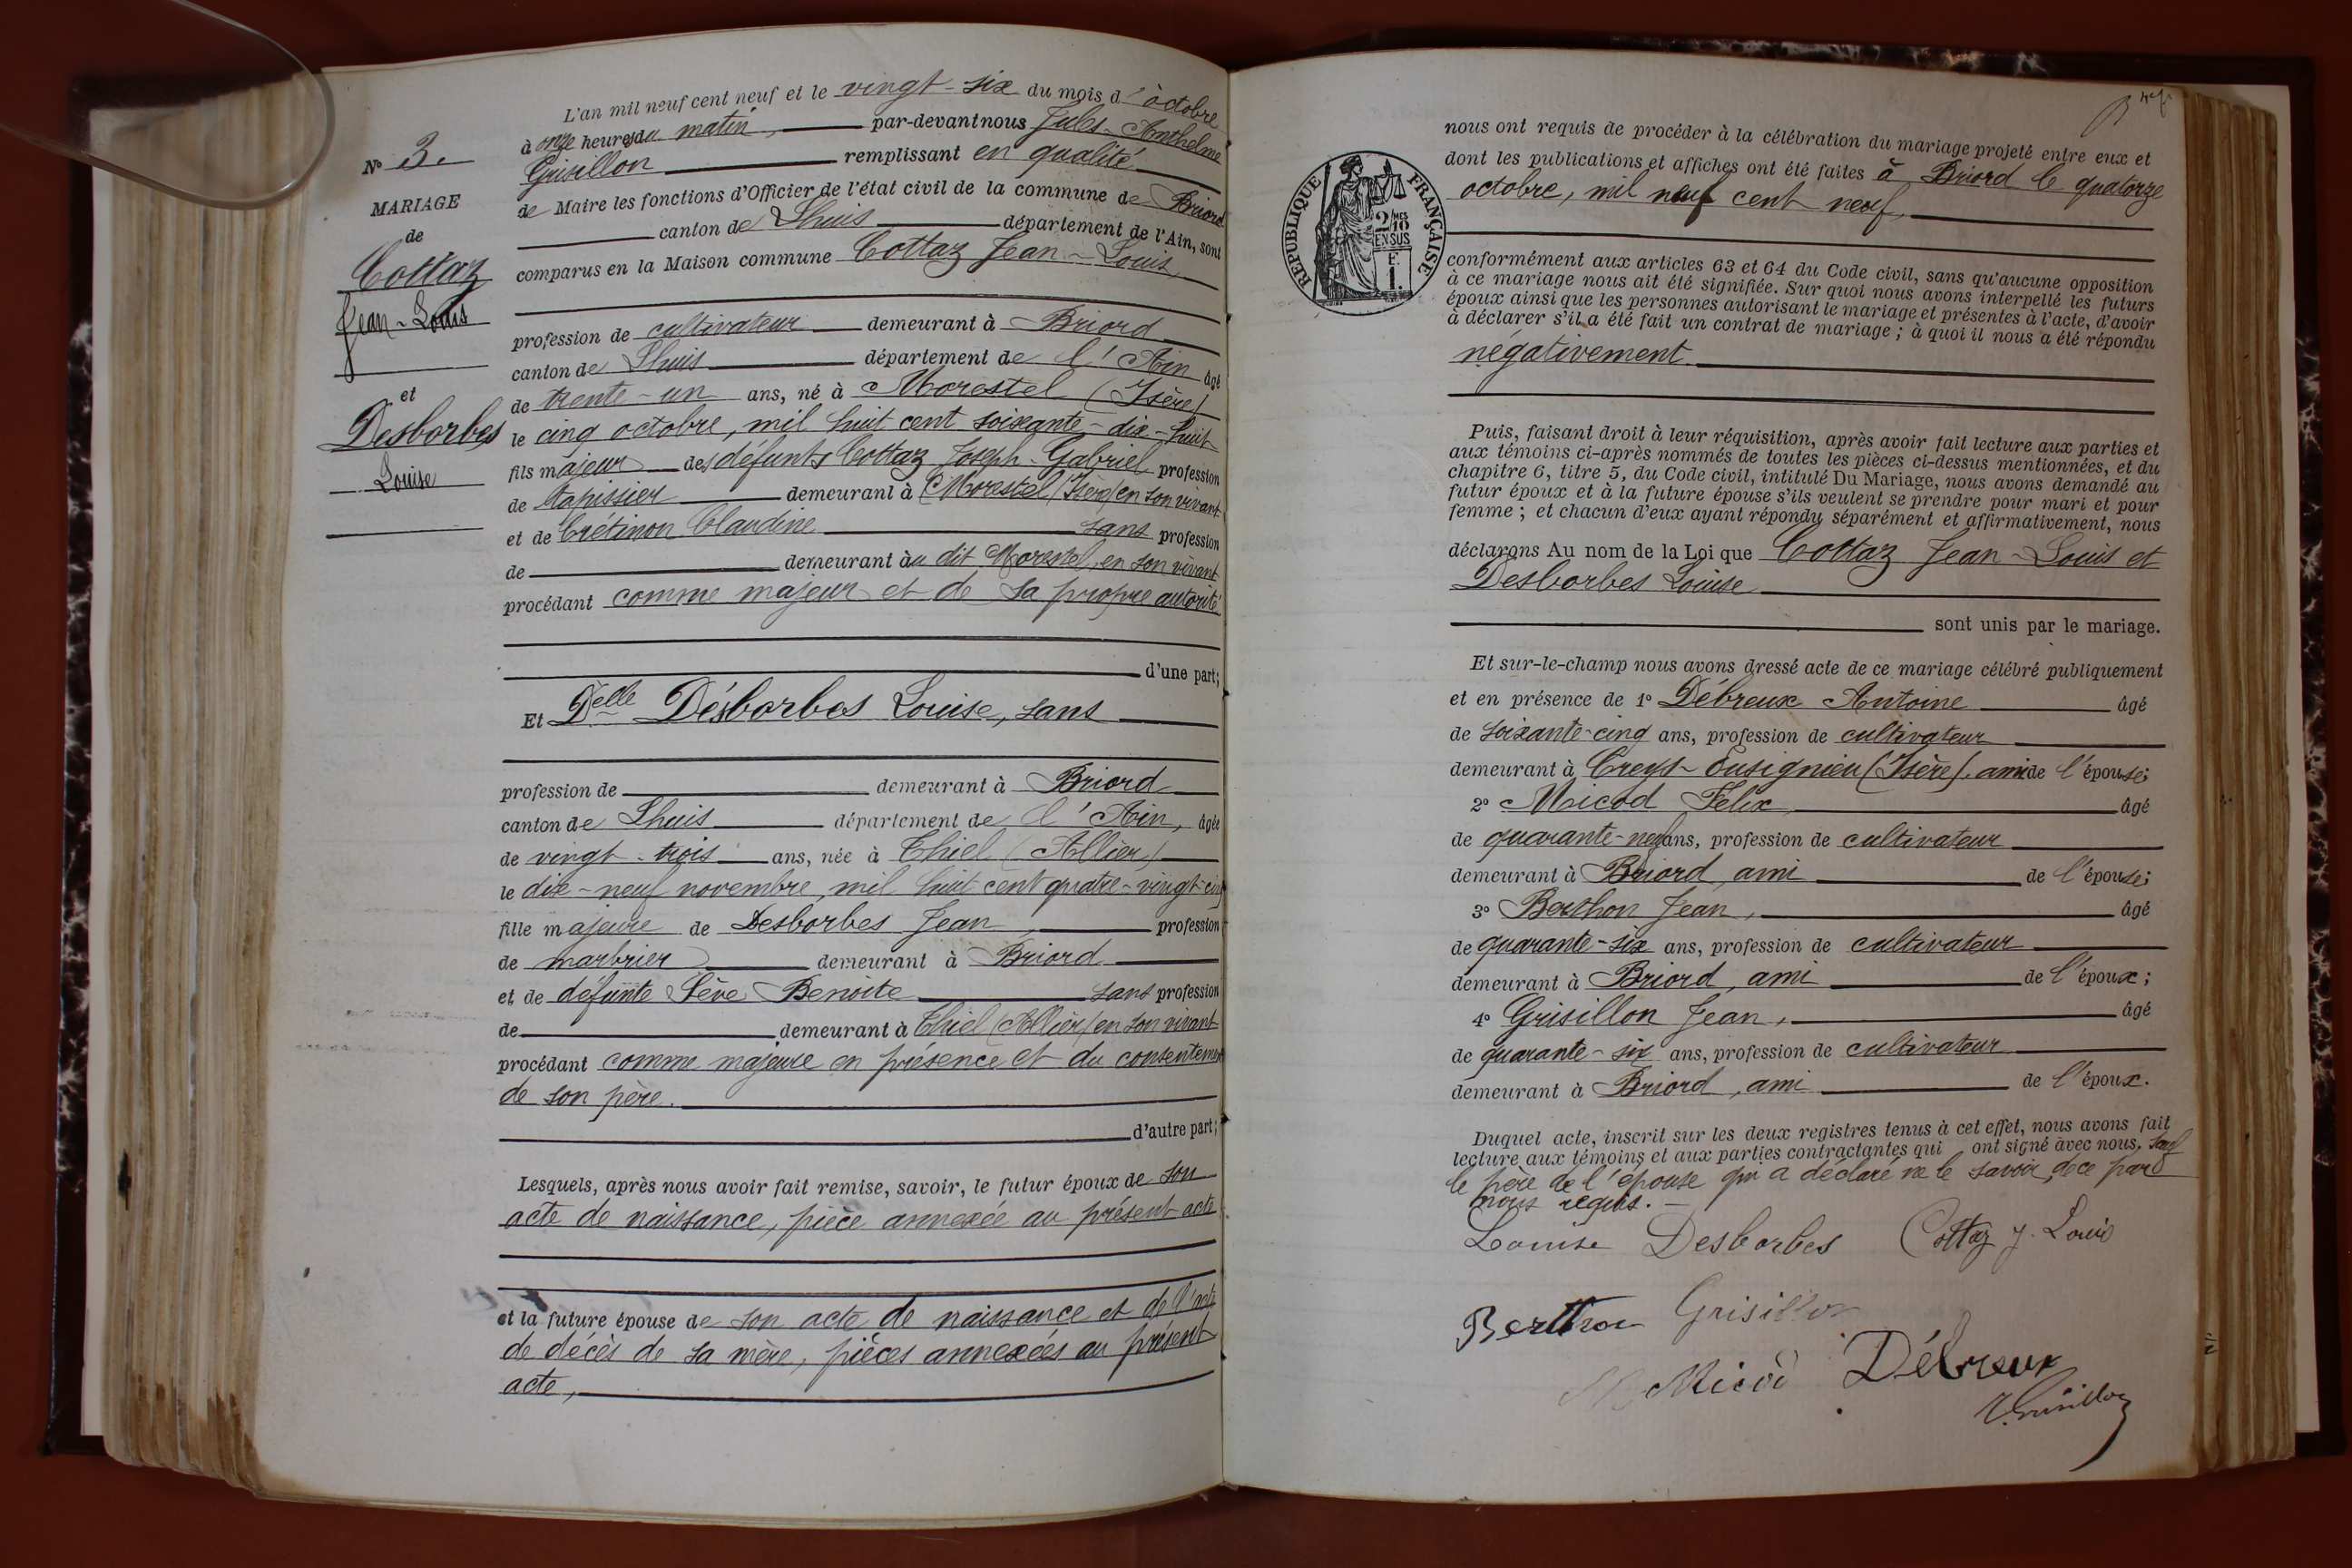 L'an mil neuf cent neuf et le vingt-six du mois d'octobre
à onze heures du matin, par-devant nous Jules-Anthelme
Grisillon remplissant en qualité
de Maire les fonctions d'Officier de l'état civil de la commune de Briord
canton de Lhuis département de l'Ain, sont
comparus en la Maison commune Cottaz Jean-Louis
profession de cultivateur demeurant à Briord
canton de Lhuis département de l'Ain âgé
de trente-un ans, né à Morestel (Isère)
le cinq octobre, mil huit cent soixante-dix-huit
fils majeur des défunts Cottaz Joseph-Gabriel profession
de tapissier demeurant à Morestel (Isère) en son vivant
et de Crétinon Claudine sans profession
de demeurant au dit Morestel, en son vivant
procédant comme majeur et de sa propre autorité
d'une part;
Et Delle Désborbes Louise, sans
profession de demeurant à Briord
canton de Lhuis département de l'Ain, âgée
de vingt-trois ans, née à Thiel (Allier)
le dix-neuf novembre, mil huit cent quatre-vingt-cinq
fille majeure de Desborbes Jean, profession
de marbrier demeurant à Briord
et de défunte Sève Benoite sans profession
de demeurant à Thiel (Allier) en son vivant
procédant comme majeure en présence et du consentement
de son père.
d'autre part;
Lesquels, après nous avoir fait remise, savoir, le futur époux de son
acte de naissance, pièce annexée au présent acte
et la future épouse de son acte de naissance et de l'acte
de décès de sa mère, pièces annexées au présent
acte,
N° 3.
MARIAGE
de
Cottaz
Jean-Louis
et
Desborbes
Louise
nous ont requis de procéder à la célébration du mariage projeté entre eux et
dont les publications et affiches ont été faites à Briord le quatorze
octobre, mil neuf cent neuf,
RÉPUBLIQUE FRANÇAISE
2/10 MES
EN SUS
F.
1.
conformément aux articles 63 et 64 du Code civil, sans qu'aucune opposition
à ce mariage nous ait été signifiée. Sur quoi nous avons interpellé les futurs
époux ainsi que les personnes autorisant le mariage et présentes à l'acte, d'avoir
à déclarer s'il a été fait un contrat de mariage; à quoi il nous a été répondu
négativement.
Puis, faisant droit à leur réquisition, après avoir fait lecture aux parties et
aux témoins ci-après nommés de toutes les pièces ci-dessus mentionnées, et du
chapitre 6, titre 5, du Code civil, intitulé Du Mariage, nous avons demandé au
futur époux et à la future épouse s'ils veulent se prendre pour mari et pour
femme; et chacun d'eux ayant répondu séparément et affirmativement, nous
déclarons Au nom de la Loi que Cottaz Jean-Louis et
Desborbes Louise
sont unis par le mariage.
Et sur-le-champ nous avons dressé acte de ce mariage célébré publiquement
et en présence de 1° Débreux Antoine âgé
de soixante-cinq ans, profession de cultivateur
demeurant à Creys-Pusignieu (Isère). ami de l'épouse;
2° Micod Felix, âgé
de quarante-neuf ans, profession de cultivateur
demeurant à Briord, ami de l'épouse;
3° Berthon Jean, âgé
de quarante-six ans, profession de cultivateur
demeurant à Briord, ami de l'époux;
4° Grisillon Jean, âgé
de quarante-six ans, profession de cultivateur
demeurant à Briord, ami de l'époux.
Duquel acte, inscrit sur les deux registres tenus à cet effet, nous avons fait
lecture aux témoins et aux parties contractantes qui ont signé avec nous, sauf
le père de l'épouse qui a déclaré ne le savoir, de ce par
nous requis.
Louise Desborbes Cottaz J. Louis
Berthon Grisillon
Micod Débreux
Grisillon